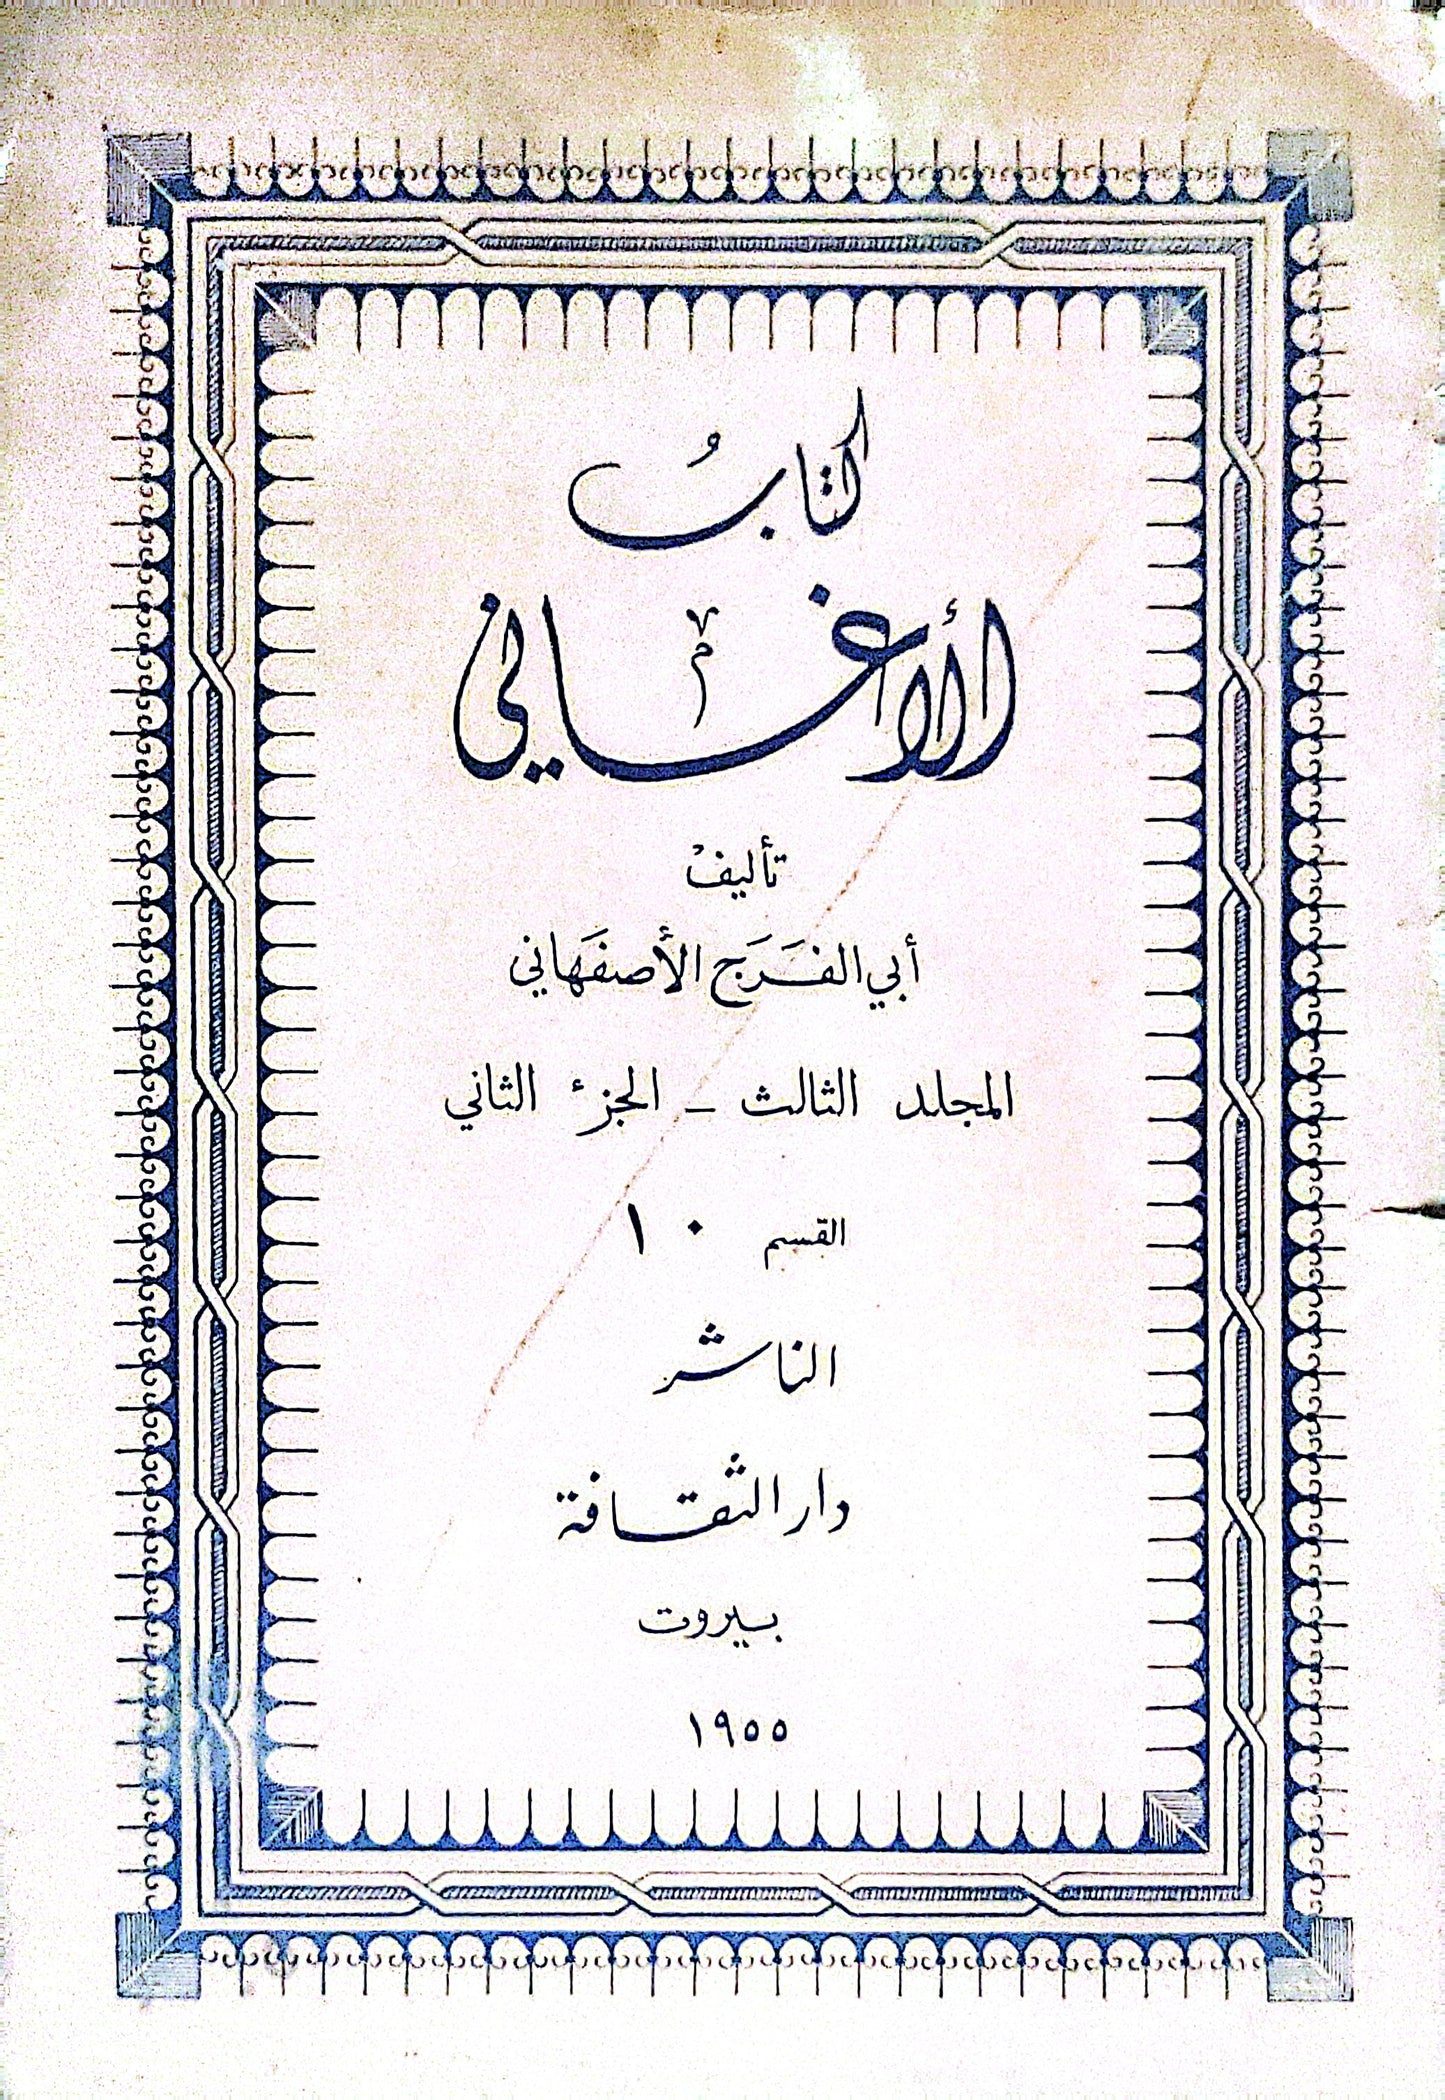 كتابُ
الأغاني
تأليفْ
أبي الفَرَج الأصفَهاني
المجلد الثالث - الجزء الثاني
القسم ١٠
الناشر
دار الثقافة
بيروت
١٩٥٥